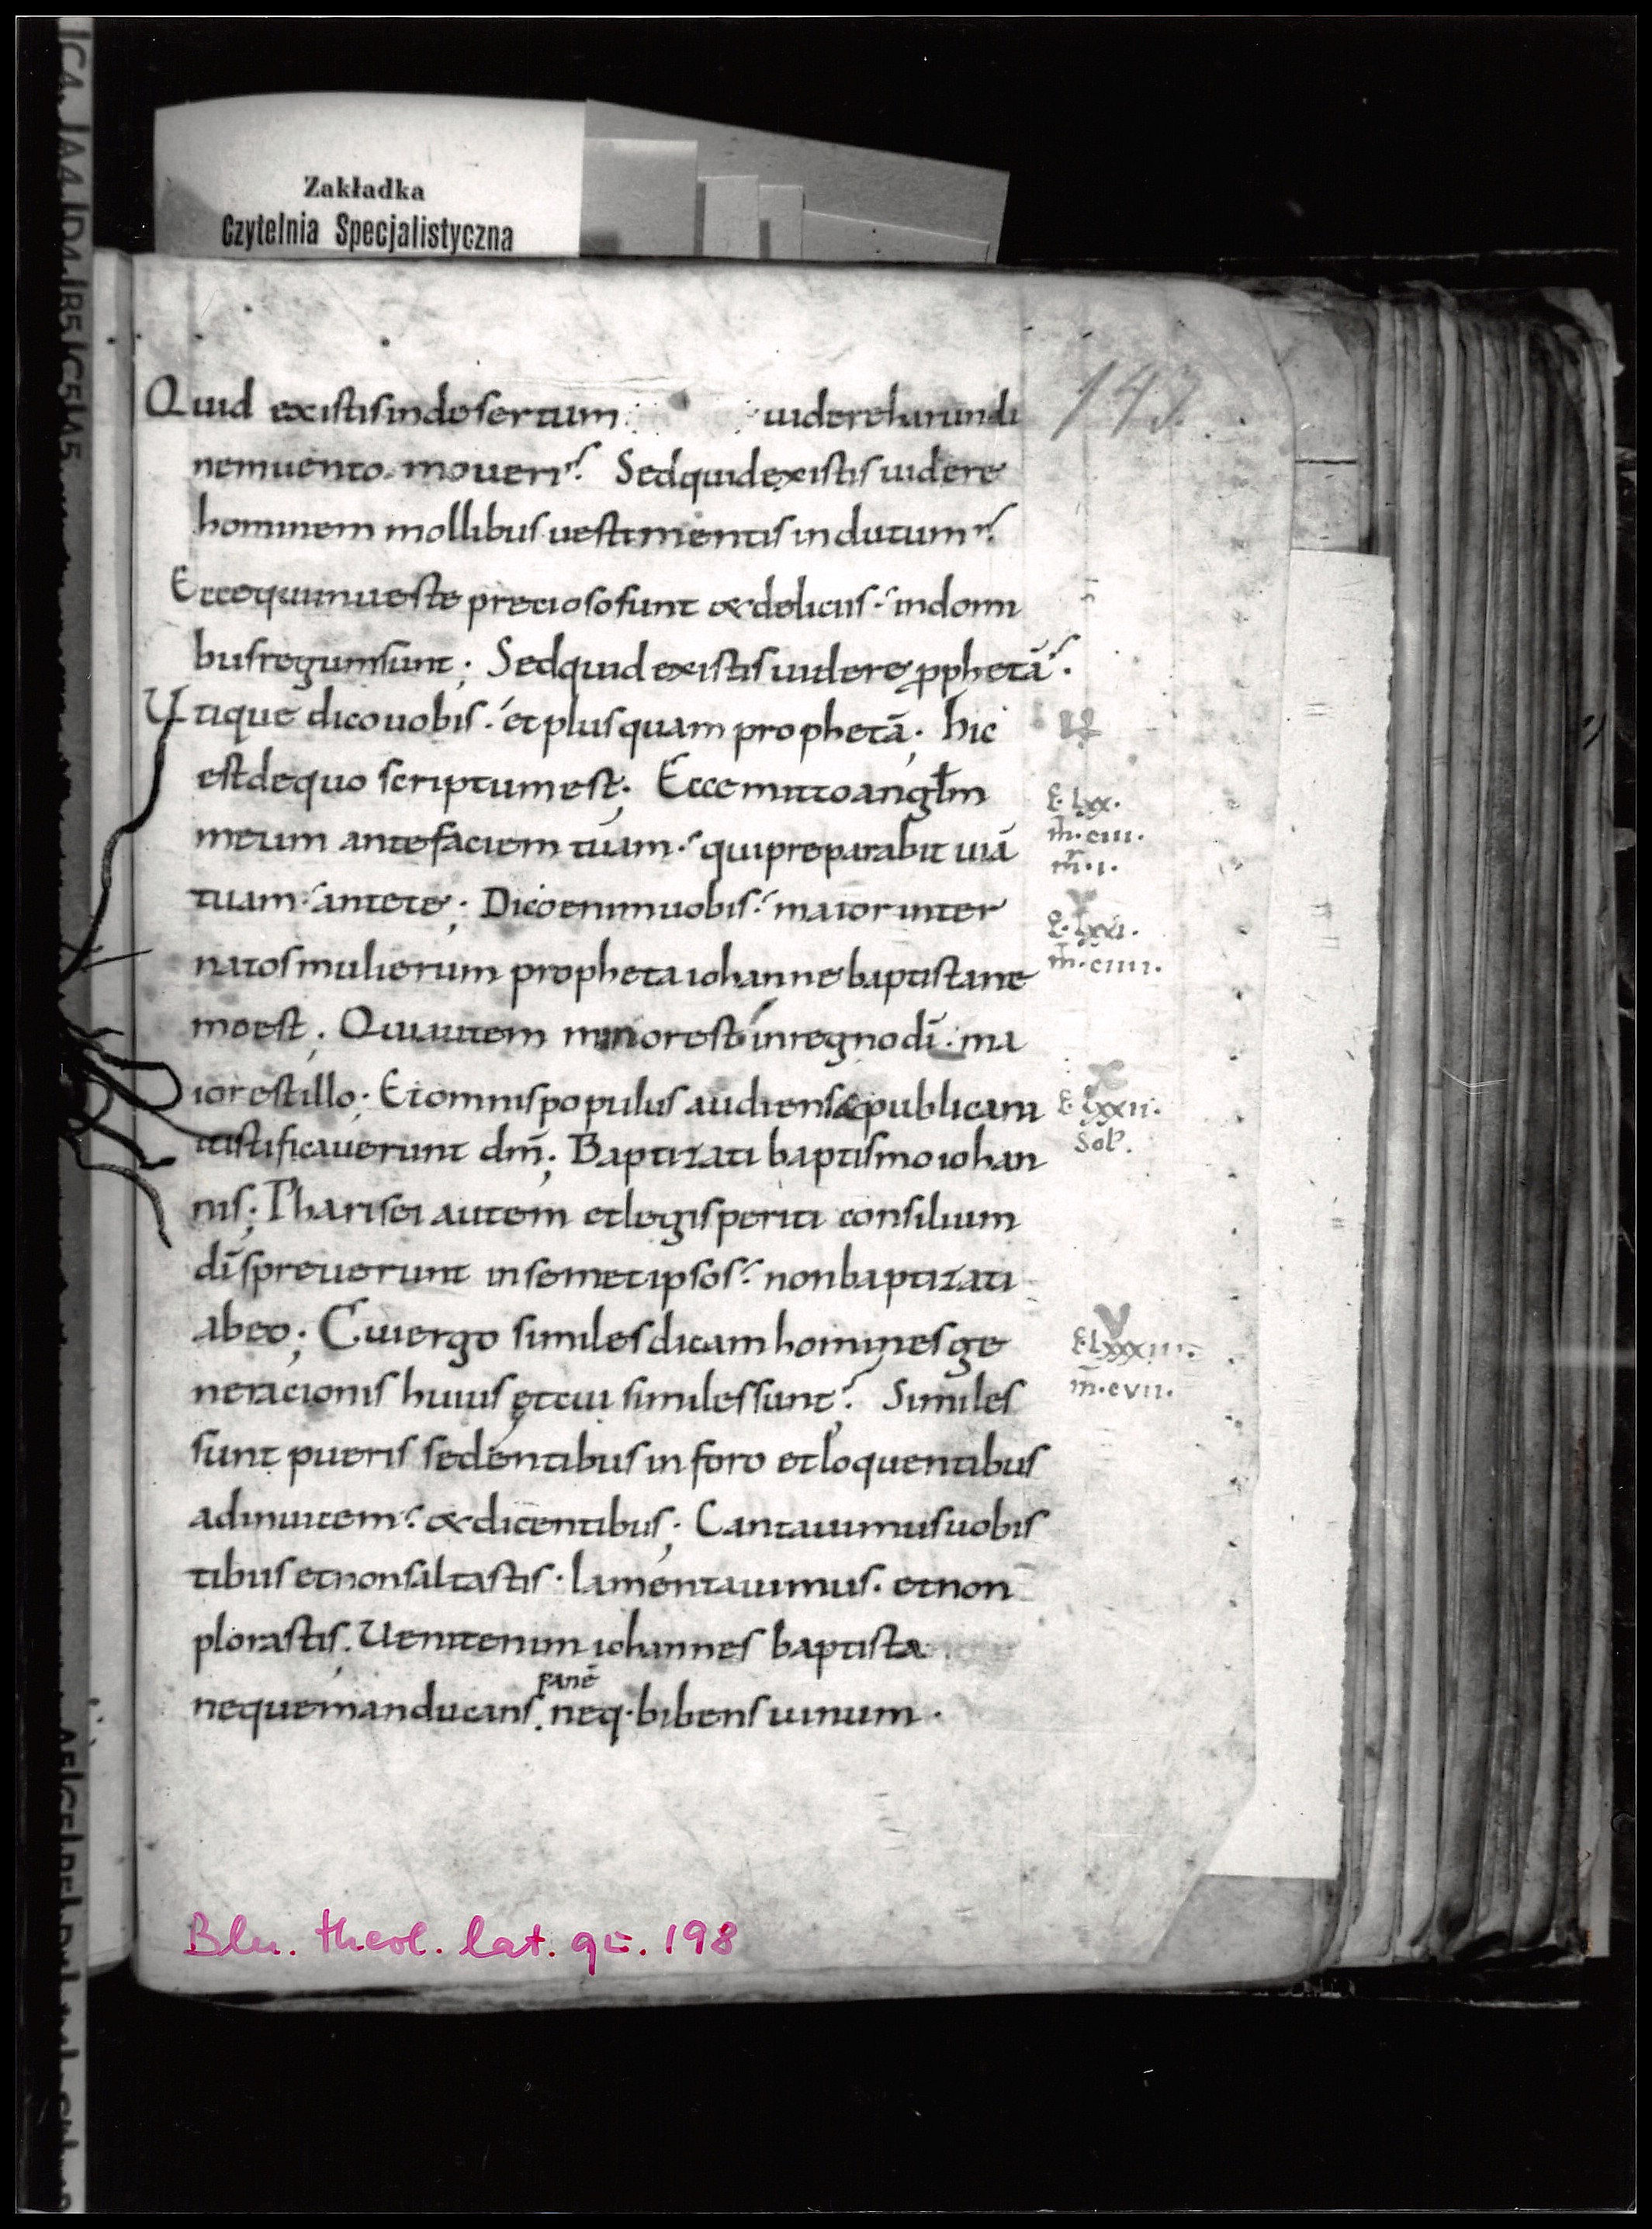 Zakładka
Czytelnia Specjalistyczna
143
Quid existis in desertum uidere harundi
nem uento moueri? Sed quid existis uidere
hominem mollibus uestimentis indutum?
Ecce qui in ueste preciosa sunt & deliciis in domi
bus regum sunt; Sed quid existis uidere pphetā?
Utique dico uobis et plus quam prophetā; hic
est de quo scriptum est; Ecce mitto anglm
meum ante faciem tuam qui preparabit uiā
tuam ante te; Dico enim uobis maior inter
natos mulierum propheta iohanne baptista ne
mo est; Qui autem minor est in regno dī ma
ior est illo; Et omnis populus audiens & publicani
iustificauerunt dm̄; Baptizati baptismo iohan
nis; Pharisei autem et legis periti consilium
dī spreuerunt in semet ipsos non baptizati
ab eo; Cui ergo similes dicam homines ge
neracionis huius et cui similes sunt? Similes
sunt pueris sedentibus in foro et loquentibus
ad inuicem & dicentibus; Cantauimus uobis
tibus et non saltastis. lamentauimus. et non
plorastis. Uenit enim iohannes baptista
panē
neque manducans neq. bibens uinum.
L. lxx.
m. ciii.
m̄. i.
L. lxxi.
m. ciiii.
L. lxxii.
Sol.
L. lxxiii.
m. cvii.
Bln. theol. lat. qu. 198